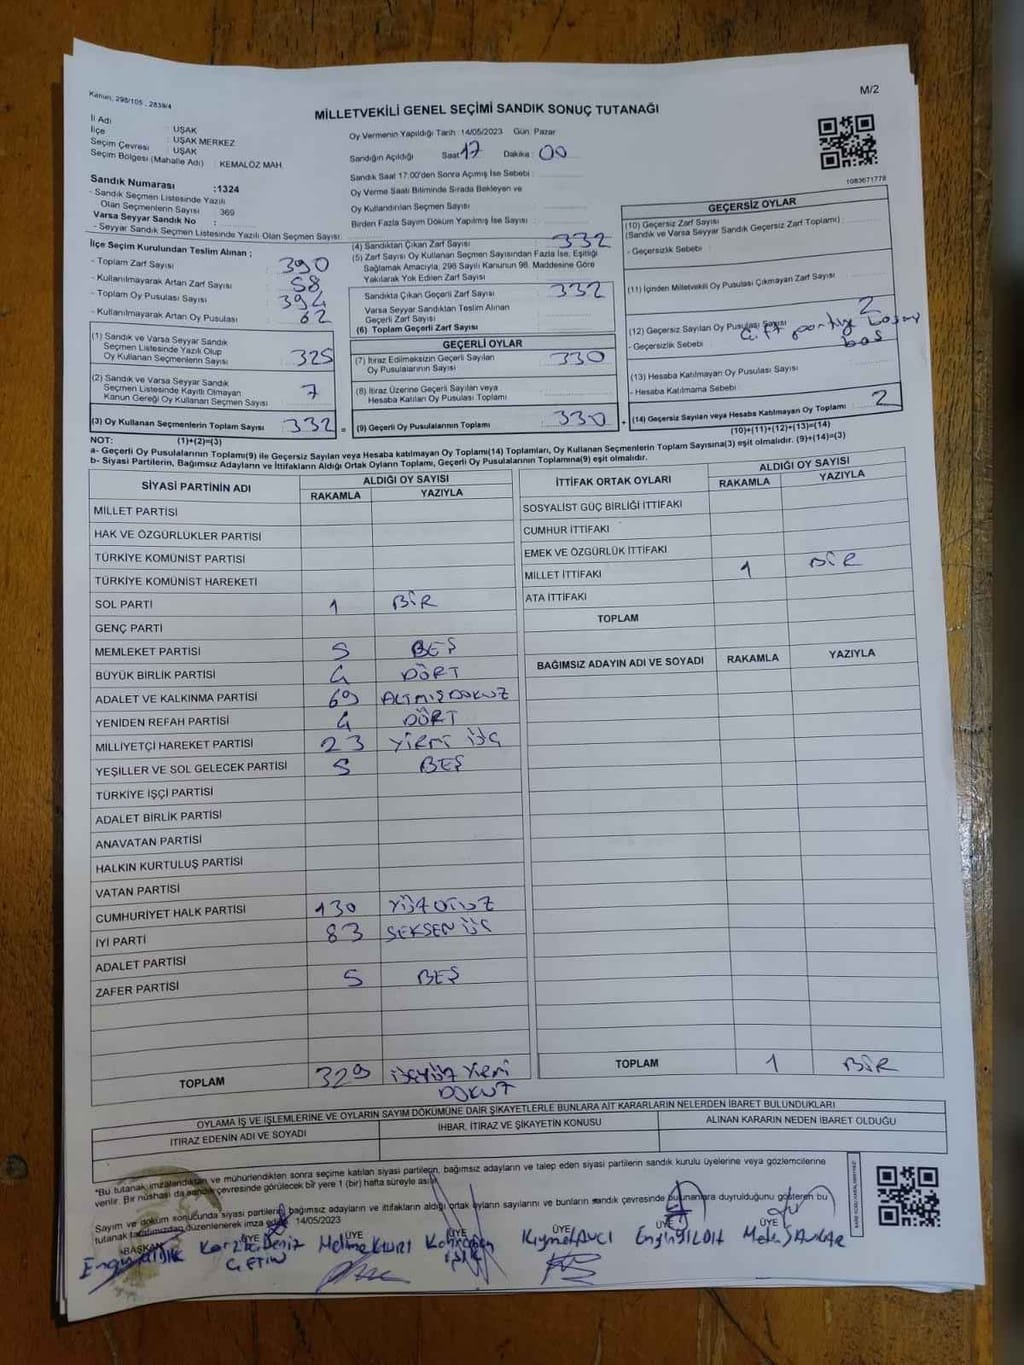 Kanun, 298/105 , 2839/4
M/2
MİLLETVEKİLİ GENEL SEÇİMİ SANDIK SONUÇ TUTANAĞI
İl Adı : UŞAK
İlçe : UŞAK MERKEZ
Seçim Çevresi : UŞAK
Seçim Bölgesi (Mahalle Adı) : KEMALÖZ MAH.
Sandık Numarası :1324
- Sandık Seçmen Listesinde Yazılı
Olan Seçmenlerin Sayısı : 369
Varsa Seyyar Sandık No :
- Seyyar Sandık Seçmen Listesinde Yazılı Olan Seçmen Sayısı:
Oy Vermenin Yapıldığı Tarih : 14/05/2023 Gün: Pazar
Sandığın Açıldığı Saat: 17 Dakika : 00
Sandık Saat 17:00'den Sonra Açılmış İse Sebebi :
Oy Verme Saati Bitiminde Sırada Bekleyen ve
Oy Kullandırılan Seçmen Sayısı :
Birden Fazla Sayım Döküm Yapılmış İse Sayısı :
1083671778
İlçe Seçim Kurulundan Teslim Alınan ;
- Toplam Zarf Sayısı : 390
- Kullanılmayarak Artan Zarf Sayısı : 58
- Toplam Oy Pusulası Sayısı : 394
- Kullanılmayarak Artan Oy Pusulası : 62
(1) Sandık ve Varsa Seyyar Sandık
Seçmen Listesinde Yazılı Olup
Oy Kullanan Seçmenlerin Sayısı : 325
(2) Sandık ve Varsa Seyyar Sandık
Seçmen Listesinde Kayıtlı Olmayan
Kanun Gereği Oy Kullanan Seçmen Sayısı : 7
(3) Oy Kullanan Seçmenlerin Toplam Sayısı : 332 =
(4) Sandıktan Çıkan Zarf Sayısı : 332
(5) Zarf Sayısı Oy Kullanan Seçmen Sayısından Fazla İse, Eşitliği
Sağlamak Amacıyla, 298 Sayılı Kanunun 98. Maddesine Göre
Yakılarak Yok Edilen Zarf Sayısı :
Sandıkta Çıkan Geçerli Zarf Sayısı : 332
Varsa Seyyar Sandıktan Teslim Alınan
Geçerli Zarf Sayısı :
(6) Toplam Geçerli Zarf Sayısı :
GEÇERLİ OYLAR
(7) İtiraz Edilmeksizin Geçerli Sayılan
Oy Pusulalarının Sayısı : 330
(8) İtiraz Üzerine Geçerli Sayılan veya
Hesaba Katılan Oy Pusulası Toplamı :
(9) Geçerli Oy Pusulalarının Toplamı : 330 +
GEÇERSİZ OYLAR
(10) Geçersiz Zarf Sayısı
(Sandık ve Varsa Seyyar Sandık Geçersiz Zarf Toplamı) :
- Geçersizlik Sebebi :
(11) İçinden Milletvekili Oy Pusulası Çıkmayan Zarf Sayısı :
(12) Geçersiz Sayılan Oy Pusulası Sayısı : 2
- Geçersizlik Sebebi : Çift partiye
boş
(13) Hesaba Katılmayan Oy Pusulası Sayısı :
- Hesaba Katılmama Sebebi :
(14) Geçersiz Sayılan veya Hesaba Katılmayan Oy Toplamı : 2
(10)+(11)+(12)+(13)=(14)
NOT: (1)+(2)=(3)
a- Geçerli Oy Pusulalarının Toplamı(9) ile Geçersiz Sayılan veya Hesaba katılmayan Oy Toplamı(14) Toplamları, Oy Kullanan Seçmenlerin Toplam Sayısına(3) eşit olmalıdır. (9)+(14)=(3)
b- Siyasi Partilerin, Bağımsız Adayların ve İttifakların Aldığı Ortak Oyların Toplamı, Geçerli Oy Pusulalarının Toplamına(9) eşit olmalıdır.
SİYASİ PARTİNİN ADI ALDIĞI OY SAYISI
RAKAMLA YAZIYLA
MİLLET PARTİSİ
HAK VE ÖZGÜRLÜKLER PARTİSİ
TÜRKİYE KOMÜNİST PARTİSİ
TÜRKİYE KOMÜNİST HAREKETİ
SOL PARTİ 1 BİR
GENÇ PARTİ
MEMLEKET PARTİSİ 5 BEŞ
BÜYÜK BİRLİK PARTİSİ 4 DÖRT
ADALET VE KALKINMA PARTİSİ 69 ALTMIŞDOKUZ
YENİDEN REFAH PARTİSİ 4 DÖRT
MİLLİYETÇİ HAREKET PARTİSİ 23 YİRMİ ÜÇ
YEŞİLLER VE SOL GELECEK PARTİSİ 5 BEŞ
TÜRKİYE İŞÇİ PARTİSİ
ADALET BİRLİK PARTİSİ
ANAVATAN PARTİSİ
HALKIN KURTULUŞ PARTİSİ
VATAN PARTİSİ
CUMHURİYET HALK PARTİSİ 130 YÜZ OTUZ
İYİ PARTİ 83 SEKSEN ÜÇ
ADALET PARTİSİ
ZAFER PARTİSİ 5 BEŞ
TOPLAM 329 ÜÇYÜZ YİRMİ
DOKUZ
İTTİFAK ORTAK OYLARI ALDIĞI OY SAYISI
RAKAMLA YAZIYLA
SOSYALİST GÜÇ BİRLİĞİ İTTİFAKI
CUMHUR İTTİFAKI
EMEK VE ÖZGÜRLÜK İTTİFAKI
MİLLET İTTİFAKI 1 BİR
ATA İTTİFAKI
TOPLAM
BAĞIMSIZ ADAYIN ADI VE SOYADI RAKAMLA YAZIYLA
TOPLAM 1 BİR
OYLAMA İŞ VE İŞLEMLERİNE VE OYLARIN SAYIM DÖKÜMÜNE DAİR ŞİKAYETLERLE BUNLARA AİT KARARLARIN NELERDEN İBARET BULUNDUKLARI
İTİRAZ EDENİN ADI VE SOYADI İHBAR, İTİRAZ VE ŞİKAYETİN KONUSU ALINAN KARARIN NEDEN İBARET OLDUĞU
"Bu tutanak imzalandıktan ve mühürlendikten sonra seçime katılan siyasi partilerin, bağımsız adayların ve talep eden siyasi partilerin sandık kurulu üyelerine veya gözlemcilerine
verilir. Bir nüshası da sandık çevresinde görülecek bir yere 1 (bir) hafta süreyle asılır.
Sayım ve döküm sonucunda siyasi partilerin, bağımsız adayların ve ittifakların aldığı ortak oyların sayılarını ve bunların sandık çevresinde bulunanlara duyrulduğunu gösteren bu
tutanak tarafımızdan düzenlenerek imza edildi. 14/05/2023
BAŞKAN ÜYE ÜYE ÜYE ÜYE ÜYE ÜYE
Deniz ÇETİN
Kıymet AVCI
Engin YILDIZ